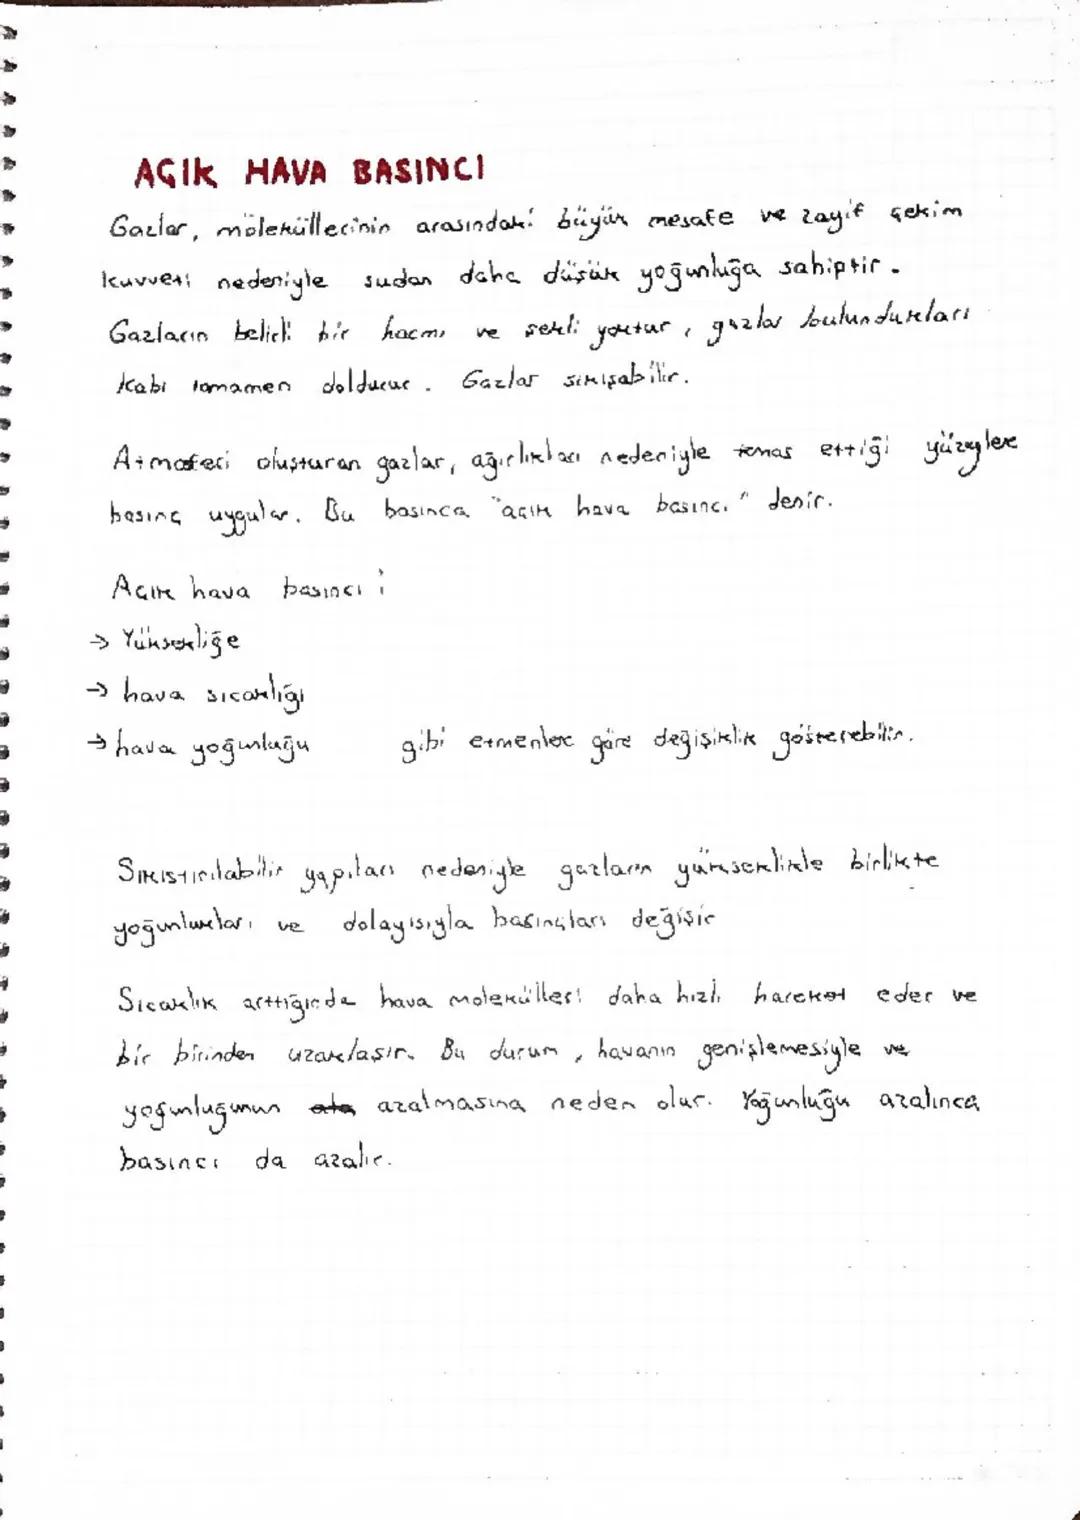 AÇIK HAVA BASINCI
Gazlar, moleküllerinin arasındaki büyük mesafe ve zayıf çekim
kuvveti nedeniyle sudan daha düşük yoğunluğa sahiptir.
Gazların belirli bir hacmi ve şekli yoktur, gazlar bulundukları
Kabı tamamen doldurur. Gazlar sıkışabilir.
Atmosferi oluşturan gazlar, ağırlıkları nedeniyle temas ettiği yüzeylere
basınç uygular. Bu basınca "açık hava basıncı" denir.
Açık hava basıncı;
→ Yüksekliğe
→ hava sıcaklığı
→ hava yoğunluğu gibi etmenlere göre değişiklik gösterebilir.
Sıkıştırılabilir yapıları nedeniyle gazların yükseklikle birlikte
yoğunlukları ve dolayısıyla basınçları değişir
Sıcaklık arttığında hava molekülleri daha hızlı hareket eder ve
bir birinden uzaklaşır. Bu durum, havanın genişlemesiyle ve
yoğunluğunun azalmasına neden olur. Yoğunluğu azalınca
basıncı da azalır.